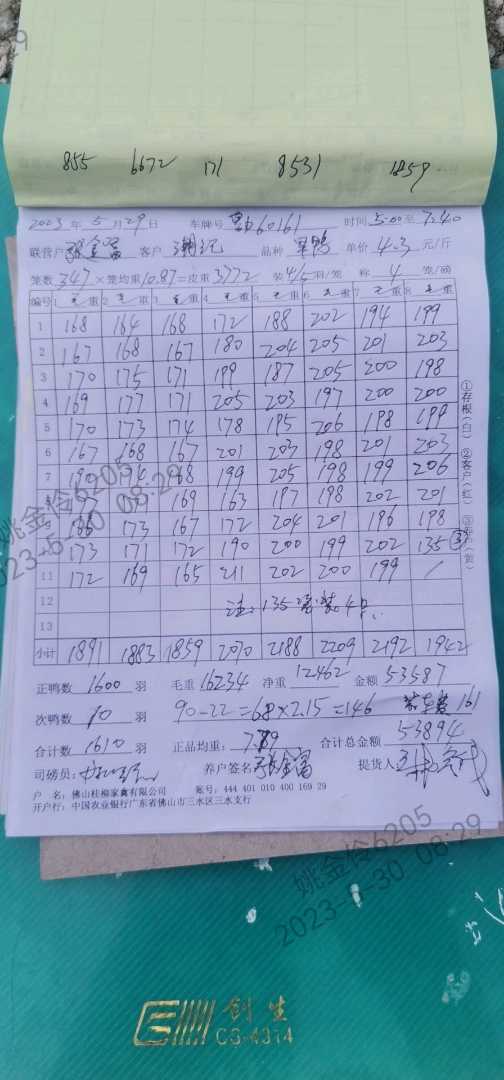 855 6672 171 8531 1859
2023年5月29日 车牌号 60161 时间5:00至7:40
联营户 张金富 客户 品种 单价 4.3 元/斤
笼数 347 × 笼均重 10.87 = 皮重 3772 装4/5羽/笼 称 4 笼/磅
编号 1 毛 重 2 毛 重 3 毛 重 4 毛 重 5 毛 重 6 毛 重 7 毛 重 8 毛 重
1 168 164 168 172 188 202 194 199
2 167 168 167 180 204 205 201 203
3 170 175 171 199 187 205 200 198
4 169 177 171 205 203 197 200 200
5 170 173 174 178 195 206 198 199
6 167 168 167 201 203 198 201 203
7 168 199 205 198 199 206
169 163 197 198 202 201
173 167 172 204 201 196 198
173 171 172 190 200 199 202 135 ③
11 172 169 165 211 202 200 199 /
12 注:135
13
小计 1891 1883 1859 2070 2188 2209 2192 1942
①存根(白) ②客户(红)
正鸭数 1600 羽 毛重 16234 净重 12462 金额 53587
次鸭数 10 羽 90-22=68×2.15=146 161
合计数 1610 羽 正品均重: 7.79 合计总金额 53894
司磅员: 养户签名 张金富 提货人
户 名:佛山桂柳家禽有限公司 账号:444 401 010 400 169 29
开户行:中国农业银行广东省佛山市三水区三水支行
姚金伶6205
2023-5-30 08:29
姚金伶6205
2023-5-30 08:29
创生
CS-4314